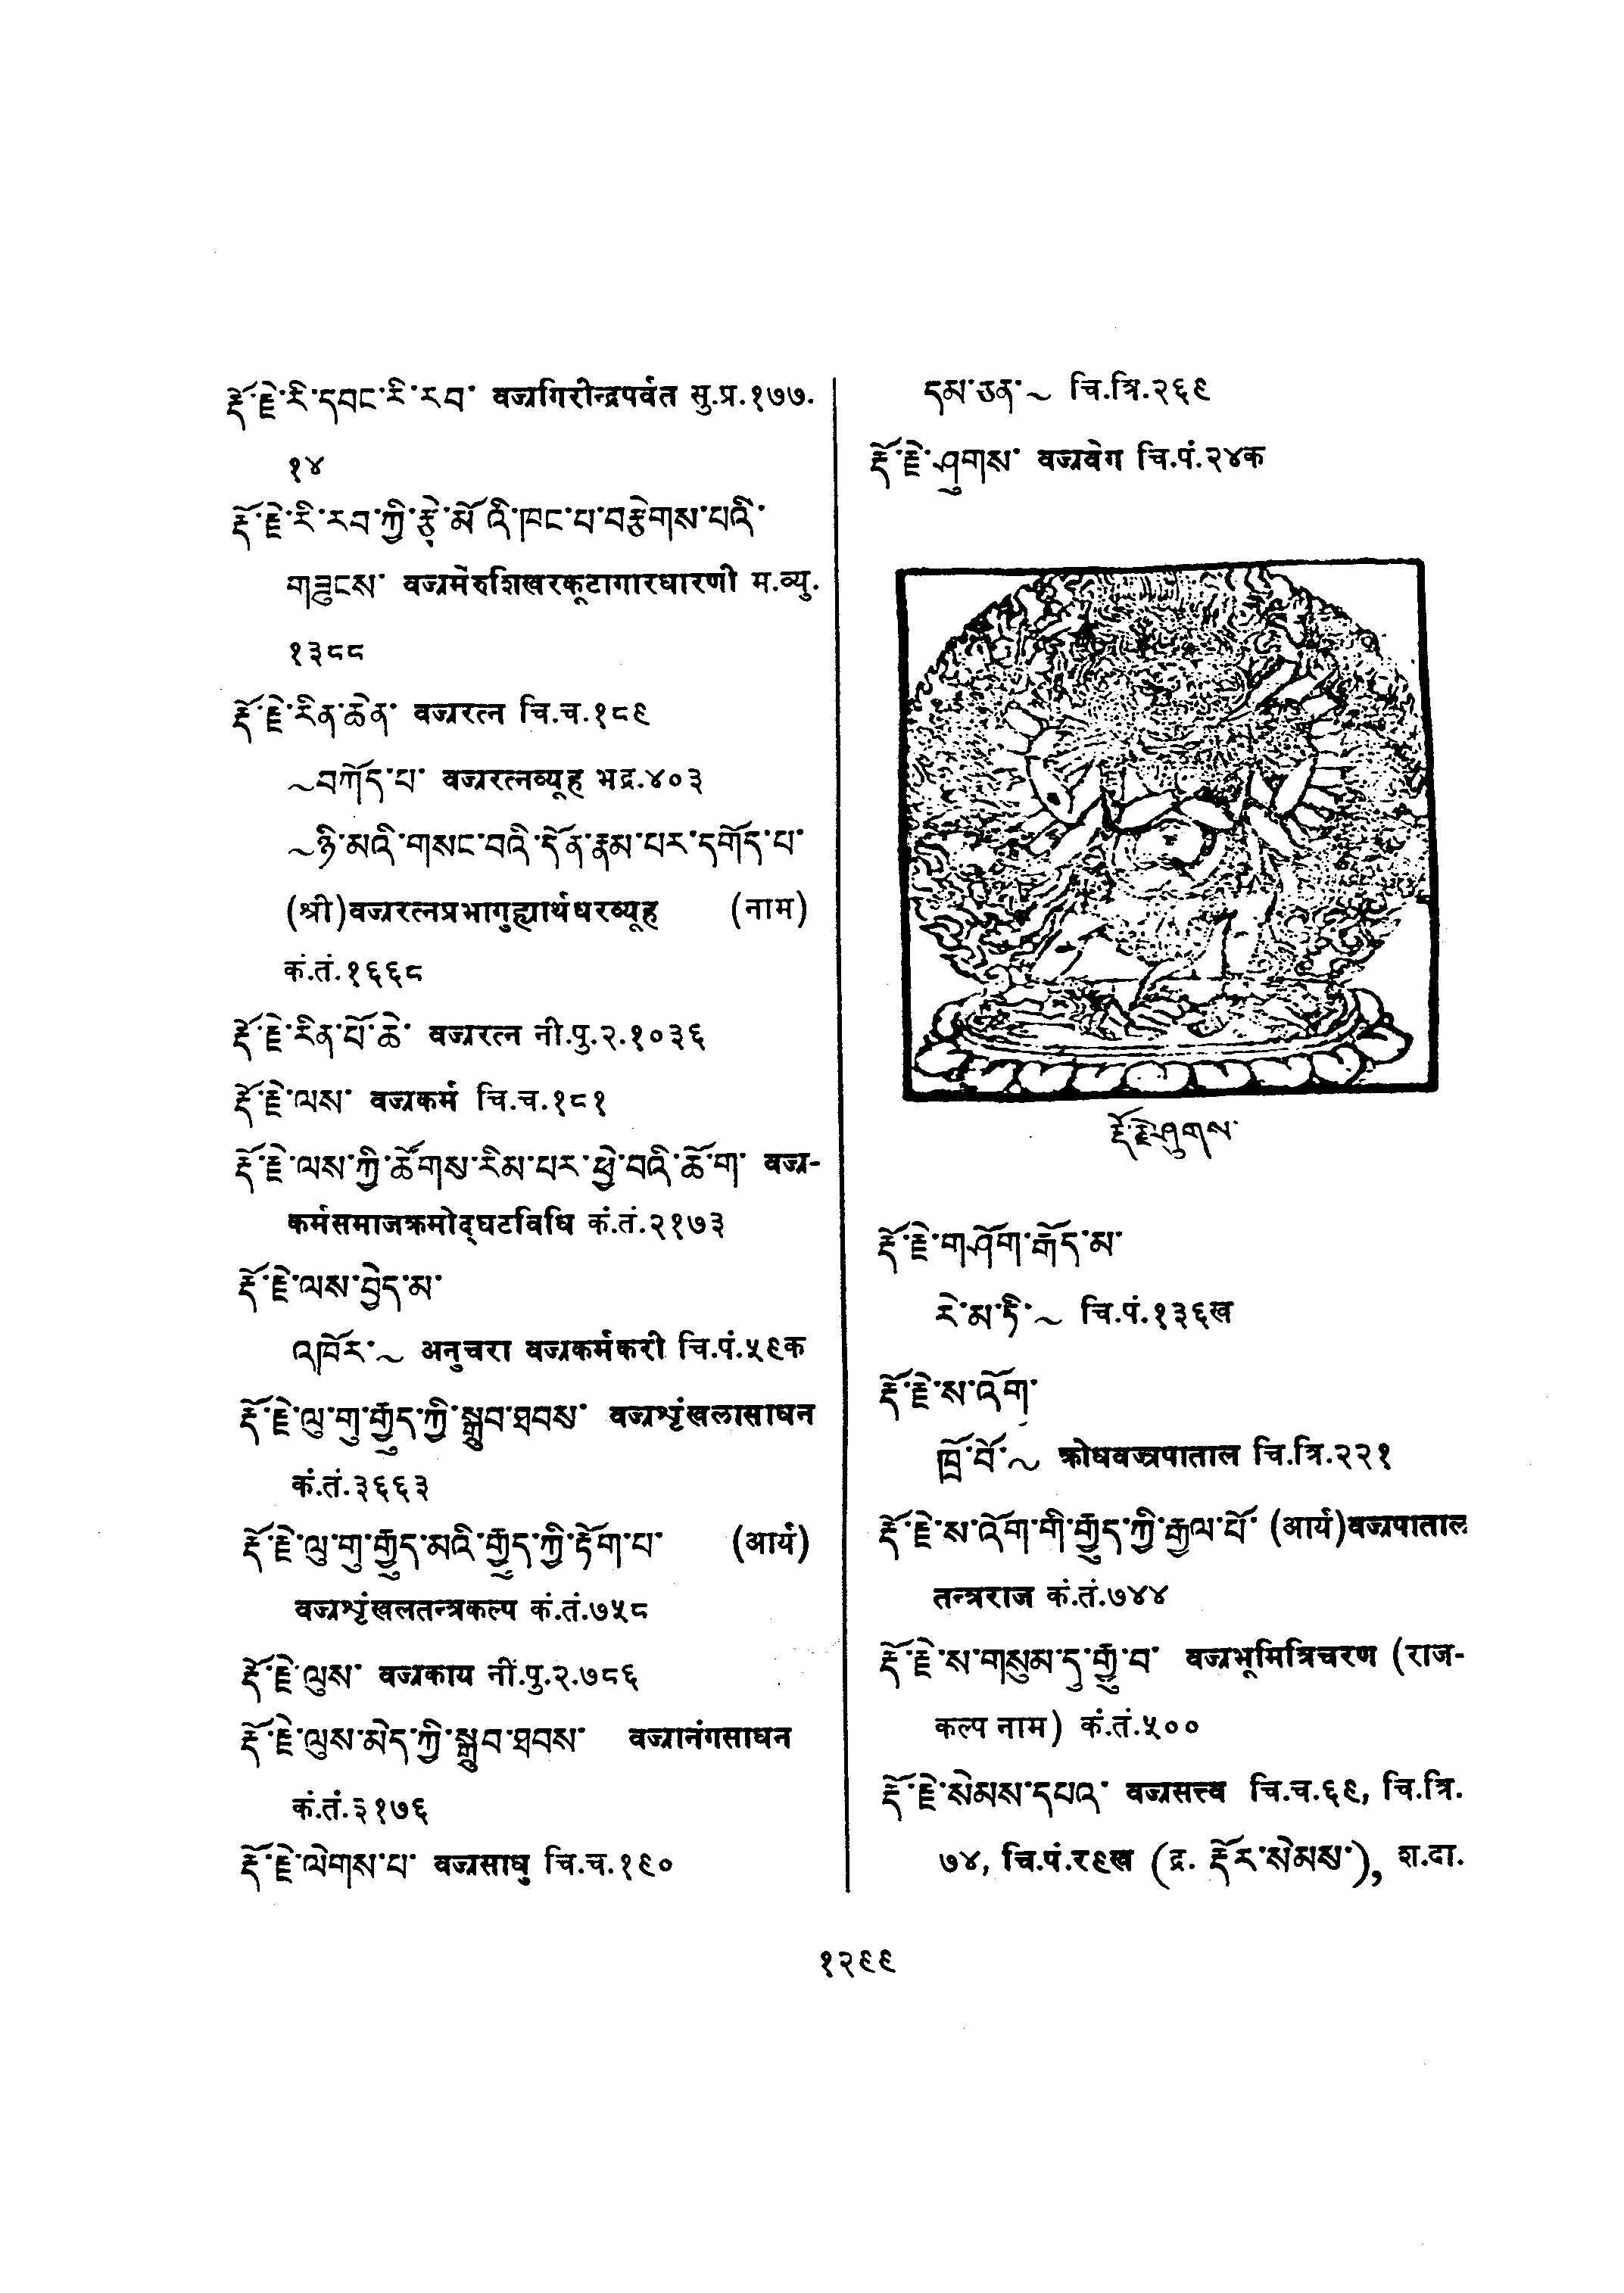 རྡོ་རྗེ་རི་དབང་རི་རབ་ वज्रगिरीन्द्रपर्वत सु.प्र.१७७.
१४
རྡོ་རྗེ་རི་རབ་ཀྱི་རྩེ་མོའི་ཁང་པ་བརྩེགས་པའི་
གཟུངས་ वज्रमेरुशिखरकूटागारधारणी म.व्यु.
१३८८
རྡོ་རྗེ་རིན་ཆེན་ वज्ररत्न चि.च.१८९
~བཀོད་པ་ वज्ररत्नव्यूह भद्र.४०३
~ཉི་མའི་གསང་བའི་དོན་རྣམ་པར་དགོད་པ་
(श्री)वज्ररत्नप्रभागुह्यार्थधरव्यूह (नाम)
कं.तं.१६६८
རྡོ་རྗེ་རིན་པོ་ཆེ་ वज्ररत्न नी.पु.२.१०३६
རྡོ་རྗེ་ལས་ वज्रकर्म चि.च.१८१
རྡོ་རྗེ་ལས་ཀྱི་ཚོགས་རིམ་པར་ཕྱེ་བའི་ཆོ་ག་ वज्र-
कर्मसमाजक्रमोद्घटविधि कं.तं.२१७३
རྡོ་རྗེ་ལས་བྱེད་མ་
འཁོར་~ अनुचरा वज्रकर्मकरी चि.पं.५९क
རྡོ་རྗེ་ལུ་གུ་རྒྱུད་ཀྱི་སྒྲུབ་ཐབས་ वज्रशृंखलासाधन
कं.तं.३६६३
རྡོ་རྗེ་ལུ་གུ་རྒྱུད་མའི་རྒྱུད་ཀྱི་རྟོག་པ་ (आर्य)
वज्रशृंखलतन्त्रकल्प कं.तं.७५८
རྡོ་རྗེ་ལུས་ वज्रकाय नी.पु.२.७८६
རྡོ་རྗེ་ལུས་མེད་ཀྱི་སྒྲུབ་ཐབས་ वज्रानंगसाधन
कं.तं.३१७६
རྡོ་རྗེ་ལེགས་པ་ वज्रसाधु चि.च.१९०
དམ་ཅན་~ चि.त्रि.२६९
རྡོ་རྗེ་ཤུགས་ वज्रवेग चि.पं.२४क
རྡོ་རྗེ་ཤུགས་
རྡོ་རྗེ་གཤོག་རྒོད་མ་
རེ་མ་ཏི་~ चि.पं.१३६ख
རྡོ་རྗེ་ས་འོག་
ཁྲོ་བོ་~ क्रोधवज्रपाताल चि.त्रि.२२१
རྡོ་རྗེ་ས་འོག་གི་རྒྱུད་ཀྱི་རྒྱལ་པོ་ (आर्य)वज्रपाताल
तन्त्रराज कं.तं.७४४
རྡོ་རྗེ་ས་གསུམ་དུ་རྒྱུ་བ་ वज्रभूमित्रिचरण (राज-
कल्प नाम) कं.तं.५००
རྡོ་རྗེ་སེམས་དཔའ་ वज्रसत्त्व चि.च.६९, चि.त्रि.
७४, चि.पं.र९ख (द्र. རྡོར་སེམས་), श.दा.
१२९९